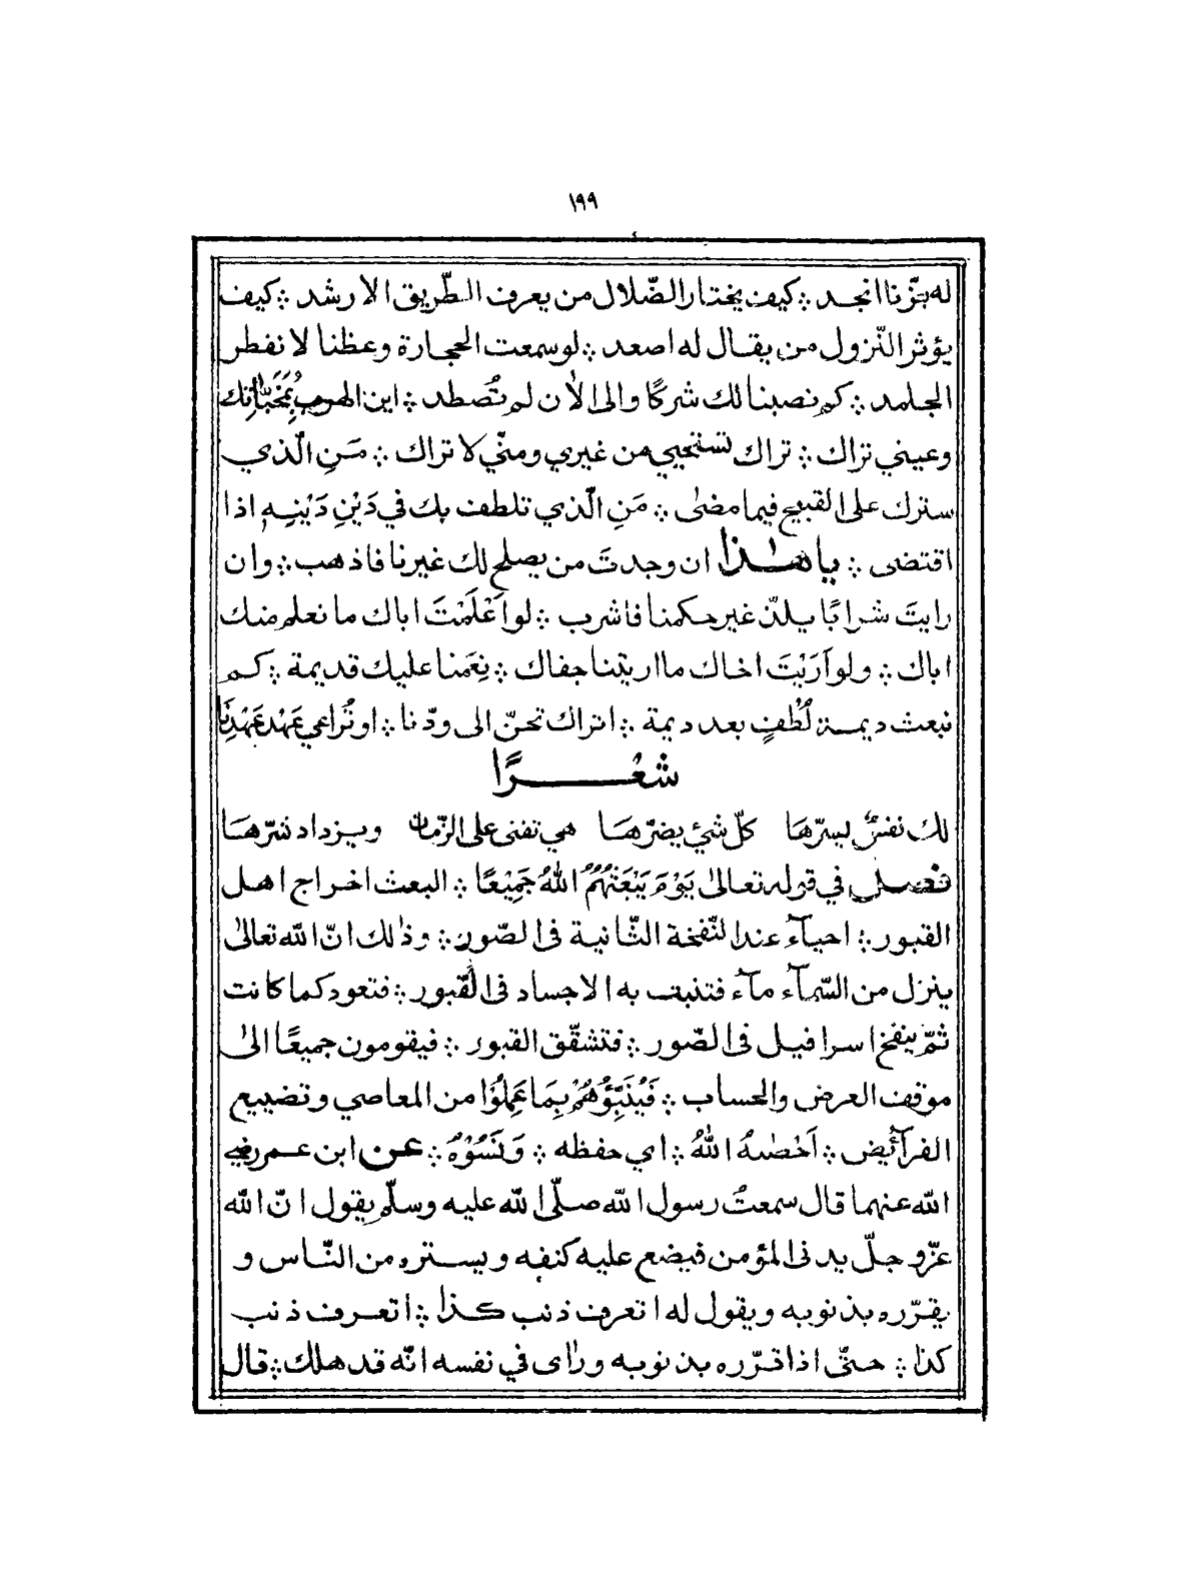 ١٩٩
له بتزّنا انجد ؞ كيف يختار الضّلال من يعرف الطّريق الارشد ؞ كيف
يؤثر النّزول من يقال له اصعد ؞ لو سمعت الحجارة وعظنا لانفطر
الجلمد ؞ كم نصبنا لك شركًا والى الاٰن لم تُصطد ؞ اين الهرب بِمُخَبَّاٰتِك
وعيني تراك ؞ تراك تستحيي من غيري ومنّي لا تراك ؞ مَنِ الّذي
سترك على القبيح فيما مضىٰ ؞ مَنِ الّذي تلطف بك في دَيْنِ دَيْنِهٖ اذا
اقتضى ؞ يا هٰذا ان وجدتَ من يصلح لك غيرنا فاذهب ؞ وان
رايتَ شرابًا يلذّ غير حكمنا فاشرب ؞ لو اَعْلَمْتَ اباك ما نعلم منك
اباك ؞ ولو اَرَيْتَ اخاك ما اريتنا جفاك ؞ نِعَمنا عليك قديمة ؞ كم
نبعث ديمة لُطْفٍ بعد ديمة ؞ اتراك تحنّ الى ودّنا ؞ او تُراعي عَهْد عَهْدِنَا
شعُرًا
لك نفسٌ يسرّهَا كلّ شئٍ يضرّهَا هي تفنى على الزّمان ويزداد شرّهَا
فصل في قوله تعالىٰ يَوْمَ يَبْعَثُهُمُ اللهُ جَمِيْعًا ؞ البعث اخراج اهل
القبور ؞ احيآء عند النّفخة الثّانية فى الصّور ؞ وذٰلك انّ الله تعالىٰ
ينزل من السّمآء مآء فتنبت به الاجساد فى القُبور ؞ فتعود كما كانت
ثمّ ينفخ اسرافيل فى الصّور ؞ فتشقّق القبور ؞ فيقومون جميعًا الىٰ
موقف العرض والحساب ؞ فَيُنَبِّؤُهُمْ بِمَا عَمِلُوْا من المعاصي وتضييع
الفرآئض ؞ اَحْصٰىهُ اللهُ ؞ اي حفظه ؞ وَنَسُوْهُ ؞ عن ابن عمر رضي
الله عنهما قال سمعتُ رسول الله صلّى الله عليه وسلّم يقول انّ الله
عزّ و جلّ يدنى المؤمن فيضع عليه كنفه ويستره من النّاس و
يقرّره بذنوبه ويقول له اتعرف ذنب كذا ؞ اتعرف ذنب
كذا ؞ حتّى اذا قرّره بذنوبه وراٰى في نفسه انّه قد هلك ؞ قال